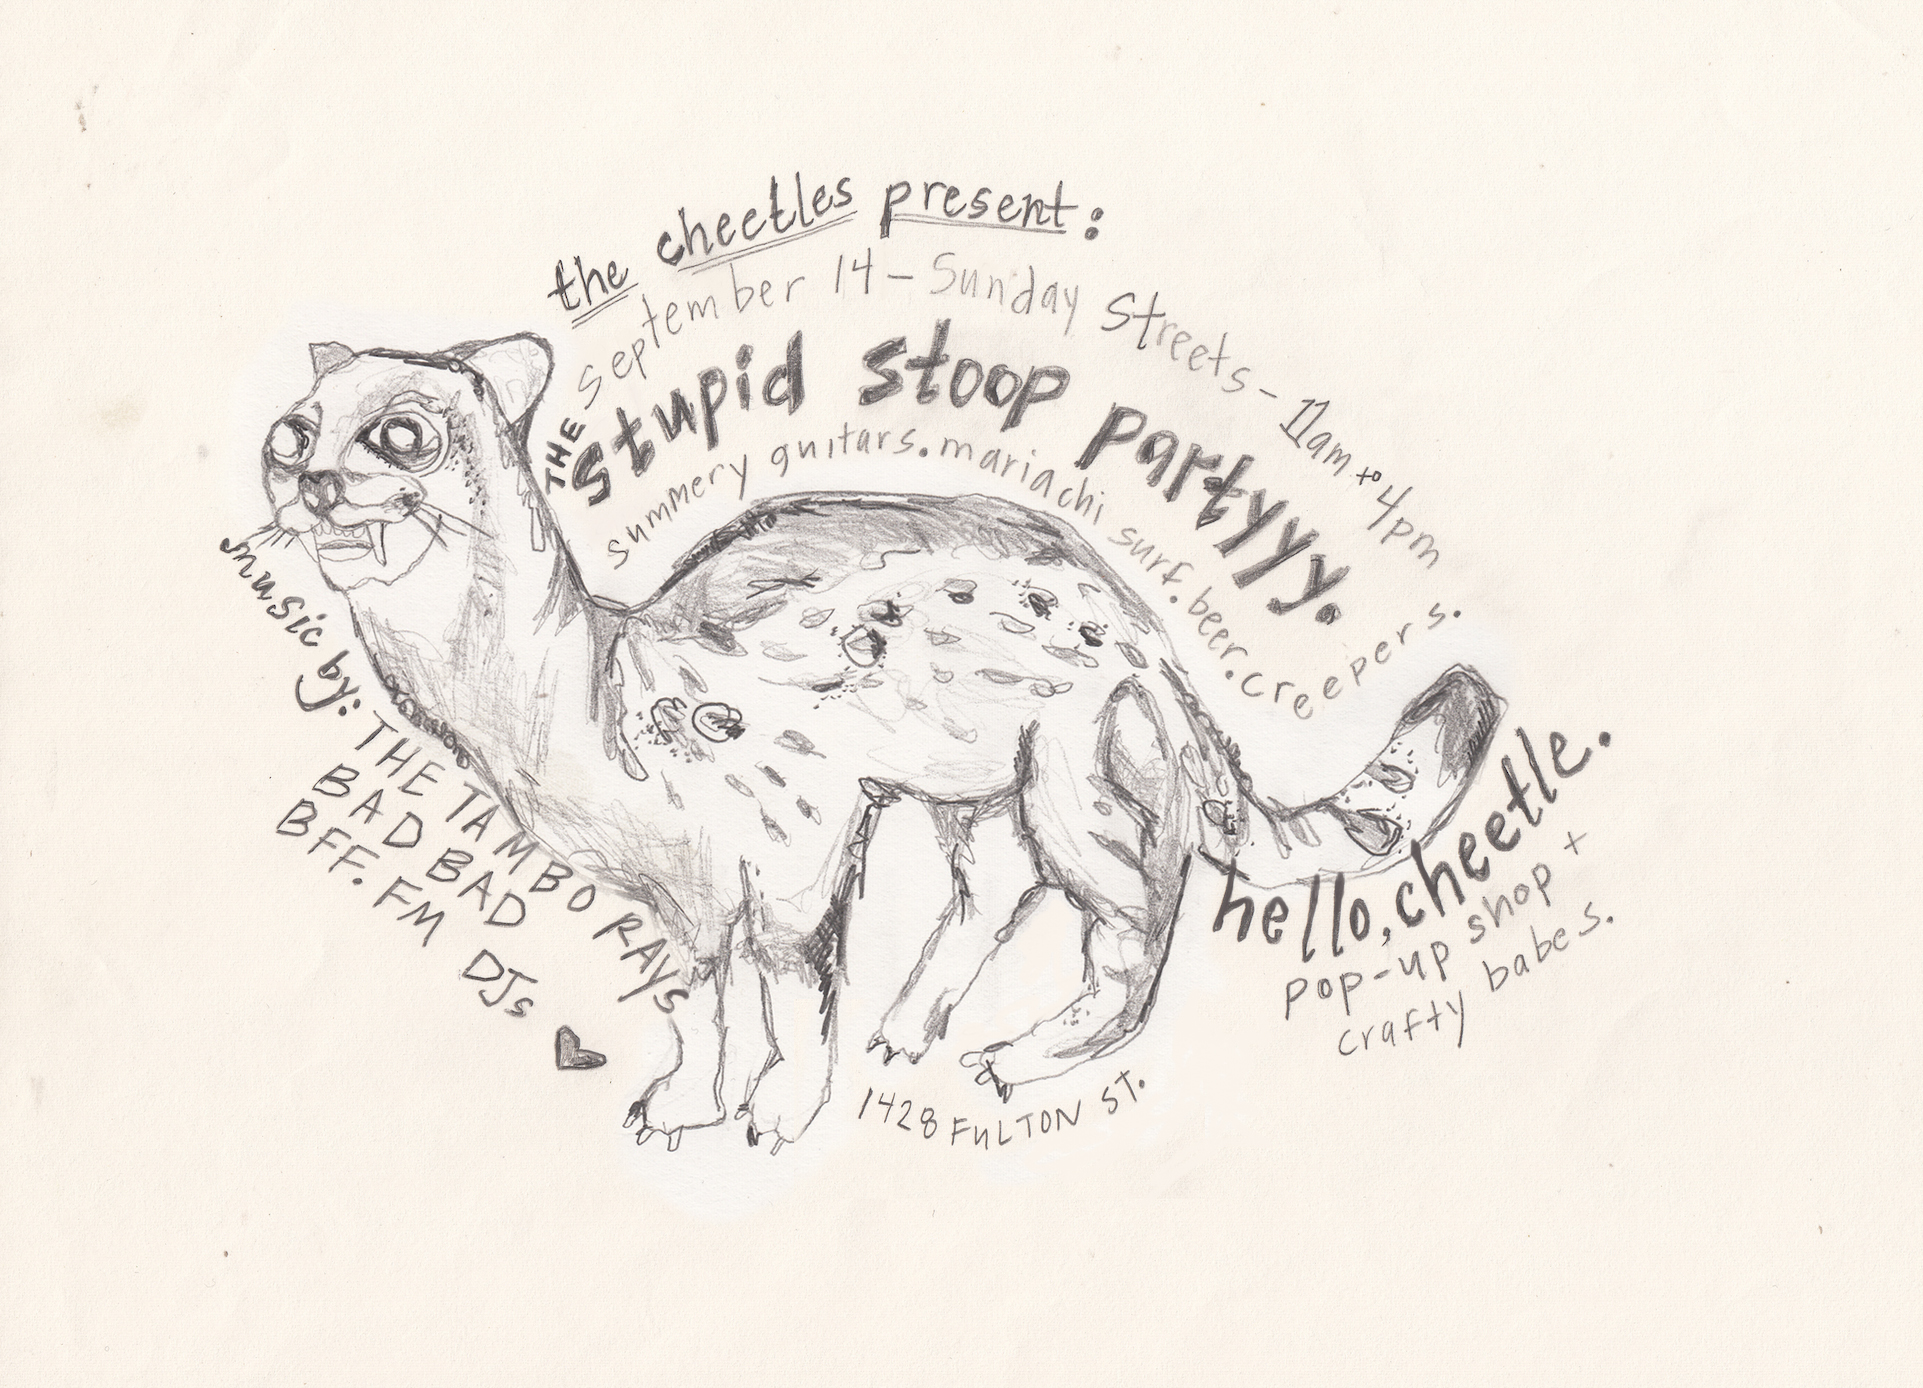 the cheetles present:
September 14 - Sunday Streets - 11am to 4pm
THE stupid stoop partyyy.
summery guitars. mariachi surf. beer. creepers.
music by: THE TAMBO RAYS
BAD BAD
BFF. FM DJs
hello, cheetle.
pop-up shop +
crafty babes.
1428 FULTON ST.